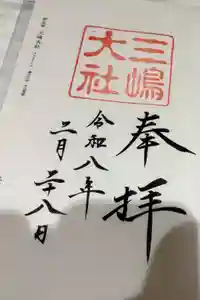 奉拝
三嶋
大社
令和八年
二月二十八日